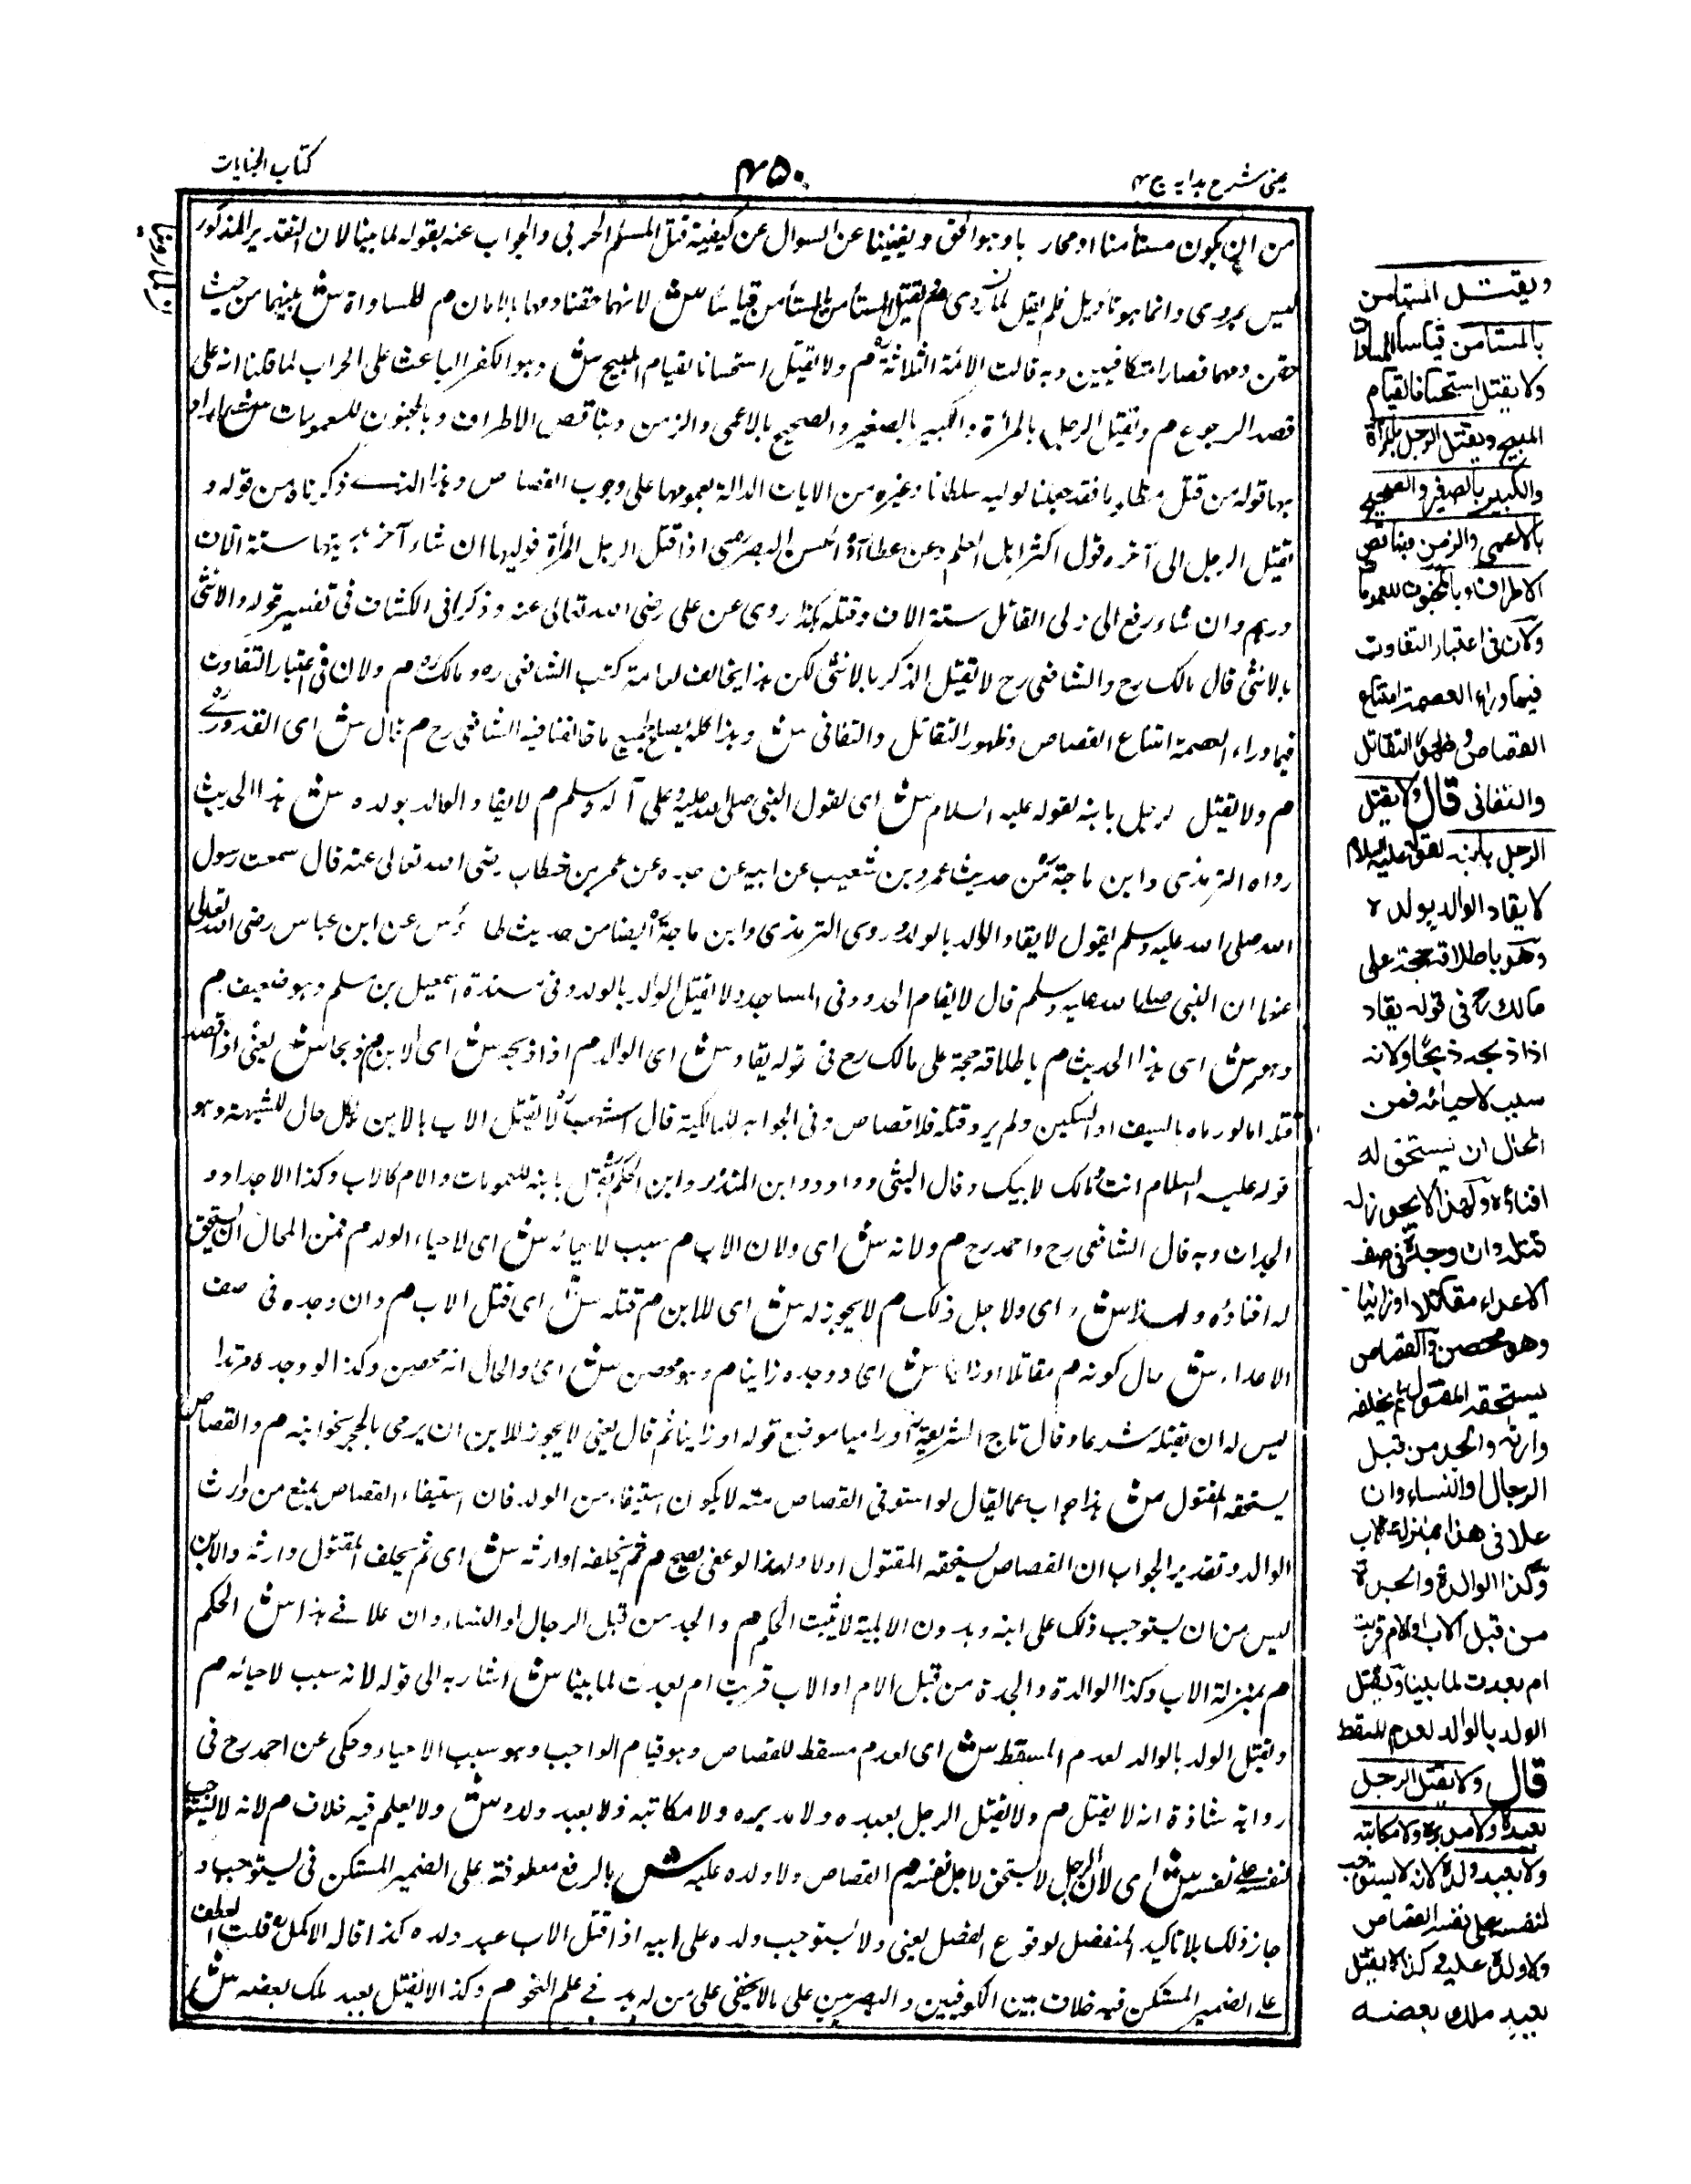 عینی شرح ہدایہ ج ۴
۴۵۰
کتاب الجنایات
من ان یکون مستأمنا او محاربا وهو الحق ویغنینا عن السوال عن کیفیة قتل المسلم الحربی والجواب عنه بقوله لما بینا لان التقدیر المذکور
لیس بمروی وانما هو تاویل فلم یقل لما روی م یقتل المستأمن بالمستأمن قیاسا ش لانهما حقنا دمهما بالامان م للمساواة ش بینهما من حیث
حقن دمهما فصارا متکافیین وبه قالت الائمة الثلاثة م ولا یقتل استحسانا لقیام المبیح ش وهو الکفر الباعث علی الحراب لما قلنا انه علی
قصد الرجوع م ویقتل الرجل بالمرأة والکبیر بالصغیر والصحیح بالاعمی والزمن وبناقص الاطراف وبالمجنون للعمومات ش اراد
بها قوله من قتل مظلوما فقد جعلنا لولیه سلطانا وغیره من الایات الدالة بعمومها علی وجوب القصاص وهذا الذی ذکرناه من قوله و
یقتل الرجل الی آخره قول اکثر اهل العلم وعن عطاء والحسن البصری اذا قتل الرجل المرأة فولیها ان شاء آخذ دیتها ستة الاف
درهم وان شاء رفع الی ولی القاتل ستة الاف وقتله هکذا روی عن علی رضی الله تعالی عنه وذکر فی الکشاف فی تفسیر قوله والانثی
بالانثی قال مالک رح والشافعی رح لا یقتل الذکر بالانثی لکن هذا یخالف لعامة کتب الشافعی ره ومالک ره م ولان فی اعتبار التفاوت
فیما وراء العصمة امتناع القصاص وظهور التقاتل والتفانی ش وهذا کله یصلح لجمیع ما خالفنا فیه الشافعی رح م قال ش ای القدوری
م ولا یقتل الرجل بابنه لقوله علیه السلام ش ای لقول النبی صلی الله علیه وعلی آله وسلم م لا یقاد الوالد بولده ش هذا الحدیث
رواه الترمذی وابن ماجة من حدیث عمرو بن شعیب عن ابیه عن جده عن عمر بن خطاب رضی الله تعالی عنه قال سمعت رسول
الله صلی الله علیه وسلم یقول لا یقاد الوالد بالولد وروی الترمذی وابن ماجة ایضا من حدیث طاؤس عن ابن عباس رضی الله تعالی
عنهما ان النبی صلی الله علیه وسلم قال لا یقام الحدود فی المساجد ولا یقتل الوالد بالولد وفی سنده اسمعیل بن مسلم وهو ضعیف م
وهو ش ای هذا الحدیث م باطلاقه حجة علی مالک رح فی قوله یقاد ش ای الوالد م اذا ذبحه ش ای الابن م ذبحا ش یعنی اذا قصد
قتله اما لو رماه بالسیف او السکین ولم یرد قتله فلا قصاص وفی الجواهر للمالکیة قال اشهب لا یقتل الاب بالابن بکل حال للشبهة وهو
قوله علیه السلام انت ومالک لابیک وقال البتی وداود وابن المنذر وابن الحکم یقتل بابنه للعمومات والام کالاب وکذا الاجداد و
الجدات وبه قال الشافعی رح واحمد رح م ولانه ش ای ولان الاب م سبب لاحیائه ش ای لاحیاء الولد م فمن المحال ان یستحق
له افناؤه ولهذا ش ای ولاجل ذلک م لا یجوز له ش ای للابن م قتله ش ای قتل الاب م وان وجده فی صف
الاعداء ش حال کونه م مقاتلا او زانیا ش ای او وجده زانیا م وهو محصن ش ای والحال انه محصن وکذا لو وجده مرتدا
لیس له ان یقتله شرعا وقال تاج الشریعة او رامیا موضع قوله او زانیا ثم قال یعنی لا یجوز للابن ان یرمی بالحجر نحو ابیه م والقصاص
یستحقه المقتول ش هذا جواب عما یقال لو استوفی القصاص منه لا یکون استیفاء من الولد فان استیفاء القصاص یمنع من وارث
الوالد وتقدیر الجواب ان القصاص یستحقه المقتول اولا ولهذا لو عفی یصح م ثم یخلفه وارثه ش ای ثم یخلف المقتول وارثه والابن
لیس من ان یستوجب ذلک علی ابنه وبدون الاهلیة لا یثبت الحکم م والجد من قبل الرجال او النساء وان علا فی هذا ش الحکم
م بمنزلة الاب وکذا الوالدة والجدة من قبل الام او الاب قربت ام بعدت لما بینا ش اشار به الی قوله لانه سبب لاحیائه م
ویقتل الولد بالوالد لعدم المسقط ش ای لعدم مسقط للقصاص وهو قیام الواجب وهو سبب الاحیاء وحکی عن احمد رح فی
روایة شاذة انه لا یقتل م ولا یقتل الرجل بعبده ولا مدبره ولا مکاتبه ولا بعبد ولده ش ولا یعلم فیه خلاف م لانه لا یستوجب
لنفسه علی نفسه ش ای لان الرجل لا یستحق لاجل نفسه م القصاص ولا ولده علیه ش بالرفع معطوفة علی الضمیر المستکن فی یستوجب و
جاز ذلک بلا تاکید المنفصل لوقوع الفصل یعنی ولا یستوجب ولده علی ابیه اذا قتل الاب عبد ولده کذا قاله الاکمل ره قلت العطف
علی الضمیر المستکن فیه خلاف بین الکوفیین والبصریین علی ما لا یخفی علی من له ید فی علم النحو م وکذا لا یقتل بعبد ملک بعضه ش
ویقتل المستامن
بالمستامن قیاسا للمساواة
ولا یقتل استحسانا لقیام
المبیح ویقتل الرجل بالمرأة
والکبیر بالصغیر والصحیح
بالاعمی والزمن وبناقص
الاطراف وبالمجنون للعمومات
ولان فی اعتبار التفاوت
فیما وراء العصمة امتناع
القصاص وظهور التقاتل
والتفانی قال ولا یقتل
الرجل بابنه لقوله علیه السلام
لا یقاد الوالد بولده
وهو باطلاقه حجة علی
مالک رح فی قوله یقاد
اذا ذبحه ذبحا ولانه
سبب لاحیائه فمن
المحال ان یستحق له
افناؤه ولهذا لا یجوز له
قتله وان وجده فی صف
الاعداء مقاتلا او زانیا
وهو محصن والقصاص
یستحقه المقتول ثم یخلفه
وارثه والجد من قبل
الرجال والنساء وان
علا فی هذا بمنزلة الاب
وکذا الوالدة والجدة
من قبل الاب والام قربت
ام بعدت لما بینا ویقتل
الولد بالوالد لعدم المسقط
قال ولا یقتل الرجل
بعبده ولا مدبره ولا مکاتبه
ولا بعبد ولده لانه لا یستوجب
لنفسه علی نفسه القصاص
ولا ولده علیه وکذا لا یقتل
بعبد ملک بعضه